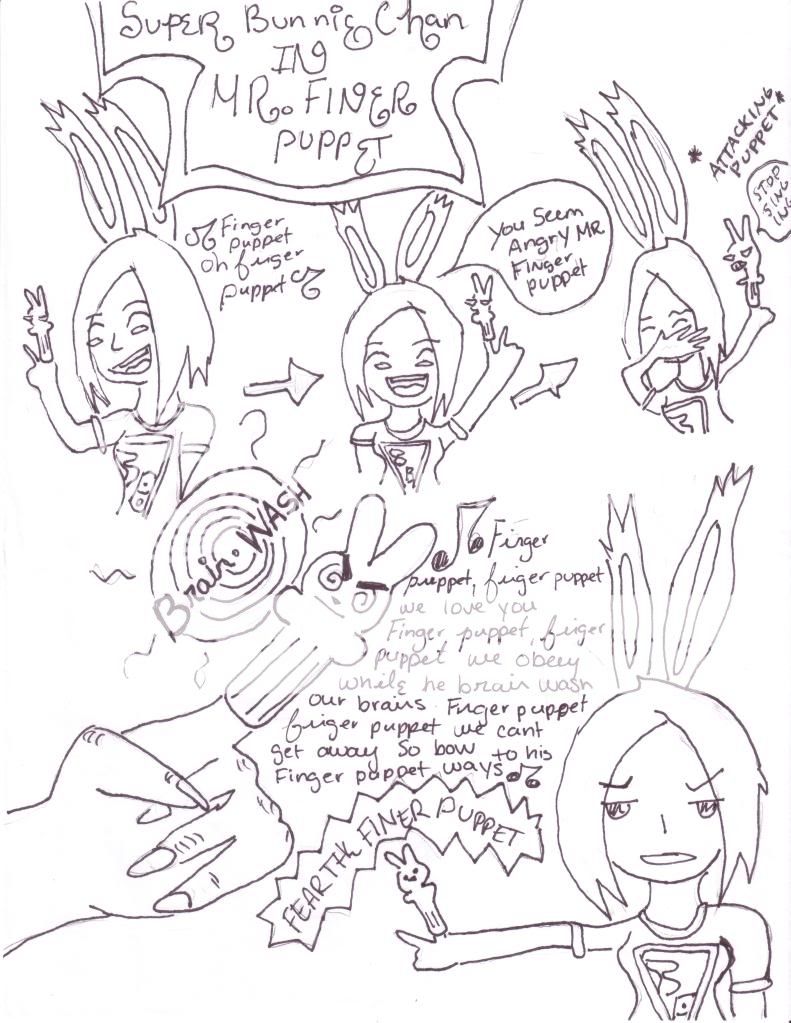 SUPER BUNNIE Chan
IN
MR. FINER
PUPPET
Finger
puppet
Oh finger
puppet
You Seem
Angry MR
Finger
puppet
* ATTACKING
PUPPET *
STOP
SING
ING
Brain. WASH
Finger
puppet, finger puppet
we love you
Finger puppet, finger
puppet we obeey
while he brain wash
our brains. Finger puppet
finger puppet we cant
get away So bow to his
Finger puppet ways
FEAR THE FINER PUPPET